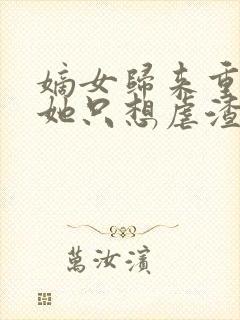 嫡女歸来重
她只想虐渣
萬汝濱